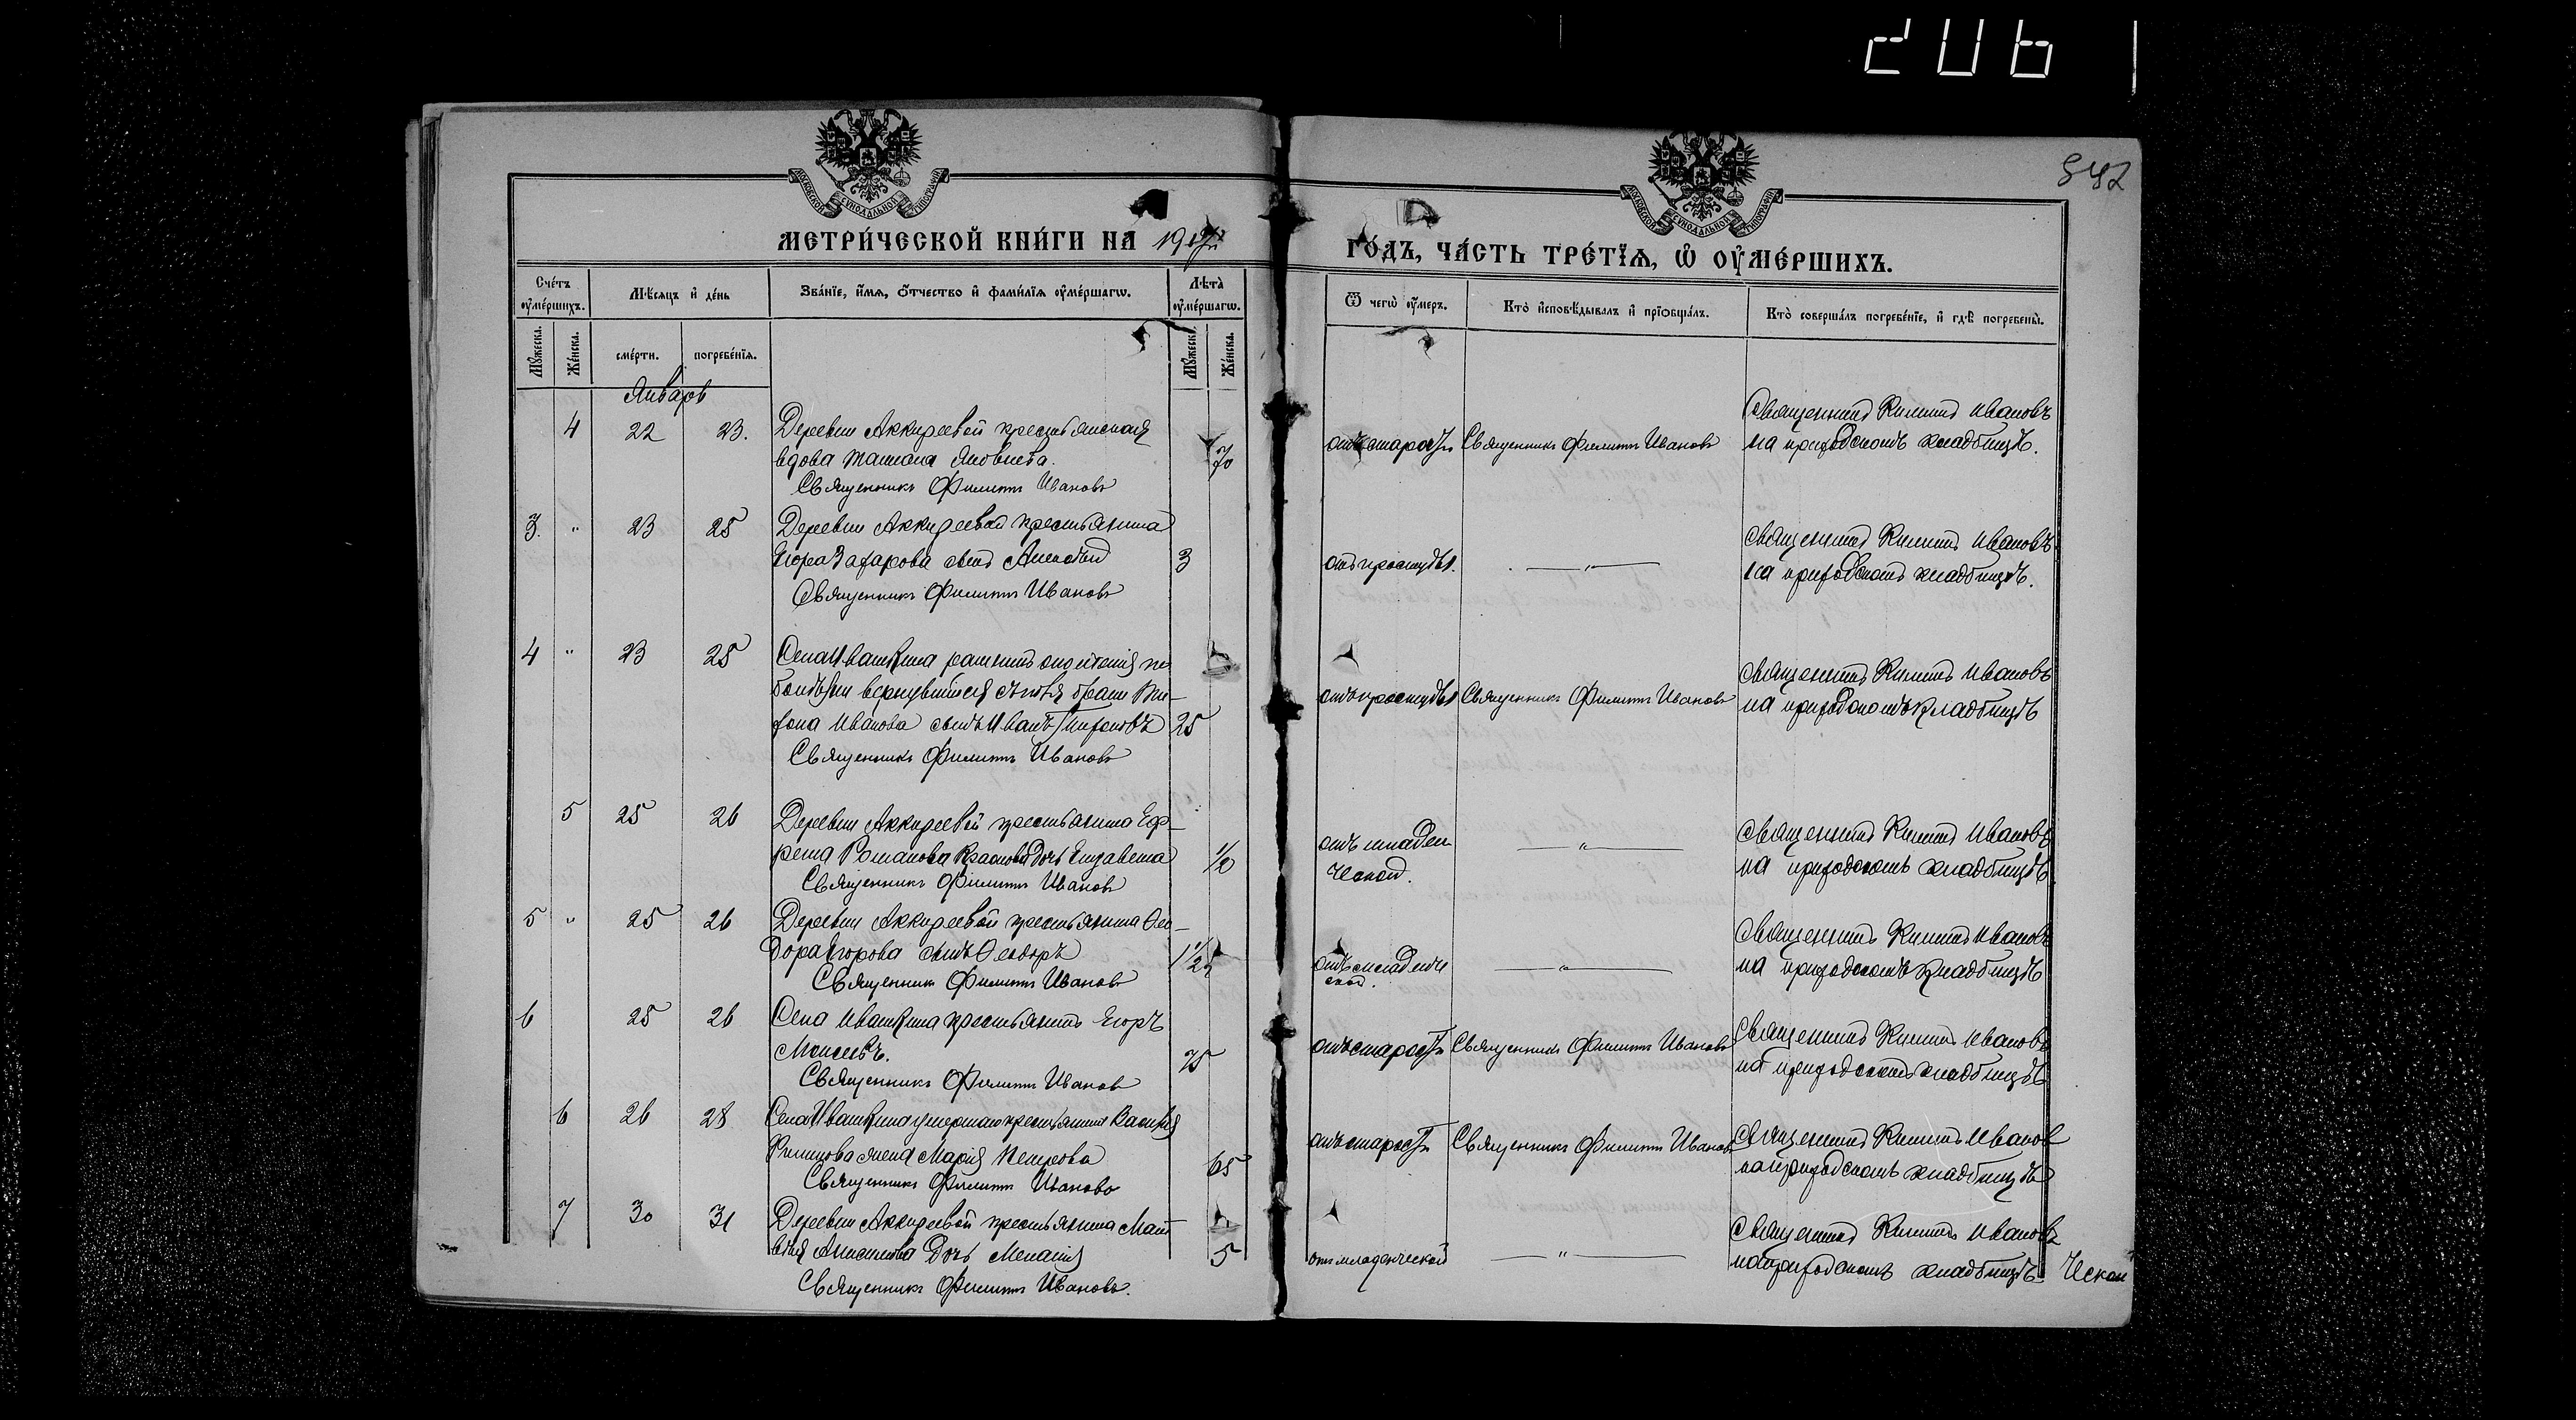 206
542
МОСКОВСКОЙ СУНОДАЛЬНОЙ ТИПОГРАФІИ
МОСКОВСКОЙ СУНОДАЛЬНОЙ ТИПОГРАФІИ
МЕТРИ́ЧЕСКОЙ КНИ́ГИ НА 1907й
ГО́ДЪ, ЧА́СТЬ ТРЕ́ТІѦ, Ѡ ОУ҆МЕ́РШИХЪ.
Сче́тъ оу҆ме́ршихъ.
Мѣ́сяцъ и҆ де́нь
Зва́нїе, и҆́мѧ, ѻ҆́тчество и҆ фами́лїѧ оу҆ме́ршагѡ.
Лѣ́та̀ оу҆ме́ршагѡ.
Ѿ чегѡ̀ оу҆́меръ.
Кто̀ и҆сповѣ́дывалъ и҆ прїѻбща́лъ.
Кто̀ соверша́лъ погребе́нїе, и҆ гдѣ̀ погребены̀.
Мꙋ́жеска.
Же́нска.
сме́рти.
погребе́нїѧ.
Мꙋ́жеска.
Же́нска.
Январь
4 22 23. Деревни Аккиреевой крестьянская
вдова Татiана Яковлева. 70
Священникъ Филиппъ Ивановъ
отъ старости Священникъ Филиппъ Ивановъ
Священникъ Филиппъ Ивановъ
на приходскомъ кладбищѣ.
3. " 23 25 Деревни Аккиреевой крестьянина
Егора Захарова сынъ Алексѣй 3
Священникъ Филиппъ Ивановъ
отъ простуды. — " —
Священникъ Филиппъ Ивановъ
на приходскомъ кладбищѣ.
4 " 23 25 Села Ивашкина
вернувшiйся
Иванова сынъ Иванъ 25
Священникъ Филиппъ Ивановъ
отъ простуды Священникъ Филиппъ Ивановъ
Священникъ Филиппъ Ивановъ
на приходскомъ кладбищѣ
5 25 26 Деревни Аккиреевой крестьянина Еф-
рема Романова Краснова дочь Елизавета 1/2
Священникъ Филиппъ Ивановъ
отъ младен
ческой. — " —
Священникъ Филиппъ Ивановъ
на приходскомъ кладбищѣ
5 " 25 26 Деревни Аккиреевой крестьянина Ѳео-
дора Егорова сынъ Ѳеодоръ 1 1/2
Священникъ Филиппъ Ивановъ
отъ младенче
ской. — " —
Священникъ Филиппъ Ивановъ
на приходскомъ кладбищѣ
6 25 26 Села Ивашкина крестьянинъ Егоръ
Моисеевъ. 75
Священникъ Филиппъ Ивановъ
отъ старости Священникъ Филиппъ Ивановъ
Священникъ Филиппъ Ивановъ
на приходскомъ кладбищѣ
6 26 28 Села Ивашкина умершаго крестьянина Василiя
Филипова жена Марiя Петрова 65
Священникъ Филиппъ Ивановъ
отъ старости Священникъ Филиппъ Ивановъ
Священникъ Филиппъ Ивановъ
на приходскомъ кладбищѣ
7 30 31 Деревни Аккиреевой крестьянина Мат-
вѣя дочь Меланiя 5
Священникъ Филиппъ Ивановъ.
отъ младенческой — " —
Священникъ Филиппъ Ивановъ
на приходскомъ кладбищѣ. Ческой